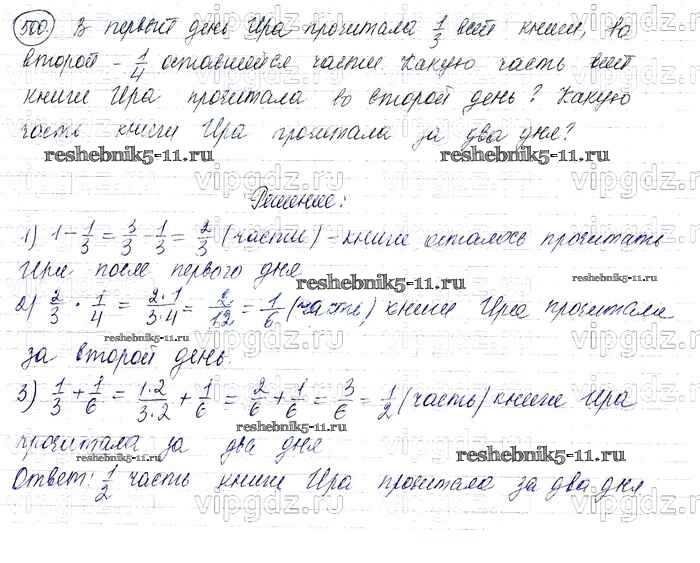 500 В первый день Ира прочитала 1/3 всей книги, во
второй - 1/4 оставшейся части. Какую часть всей
книги Ира прочитала во второй день? Какую
часть книги Ира прочитала за два дня?
reshebnik5-11.ru reshebnik5-11.ru
vipgdz.ru vipgdz.ru
Решение:
1) 1 - 1/3 = 3/3 - 1/3 = 2/3 (части) - книги осталось прочитать
Ире после первого дня
reshebnik5-11.ru reshebnik5-11.ru
2) 2/3 · 1/4 = 2·1/3·4 = 2/12 = 1/6 (часть) книги Ира прочитала
reshebnik5-11.ru reshebnik5-11.ru
за второй день.
3) 1/3 + 1/6 = 1·2/3·2 + 1/6 = 2/6 + 1/6 = 3/6 = 1/2 (часть) книги Ира
reshebnik5-11.ru
прочитала за два дня
reshebnik5-11.ru
Ответ: 1/2 часть книги Ира прочитала за два дня
vipgdz.ru vipgdz.ru